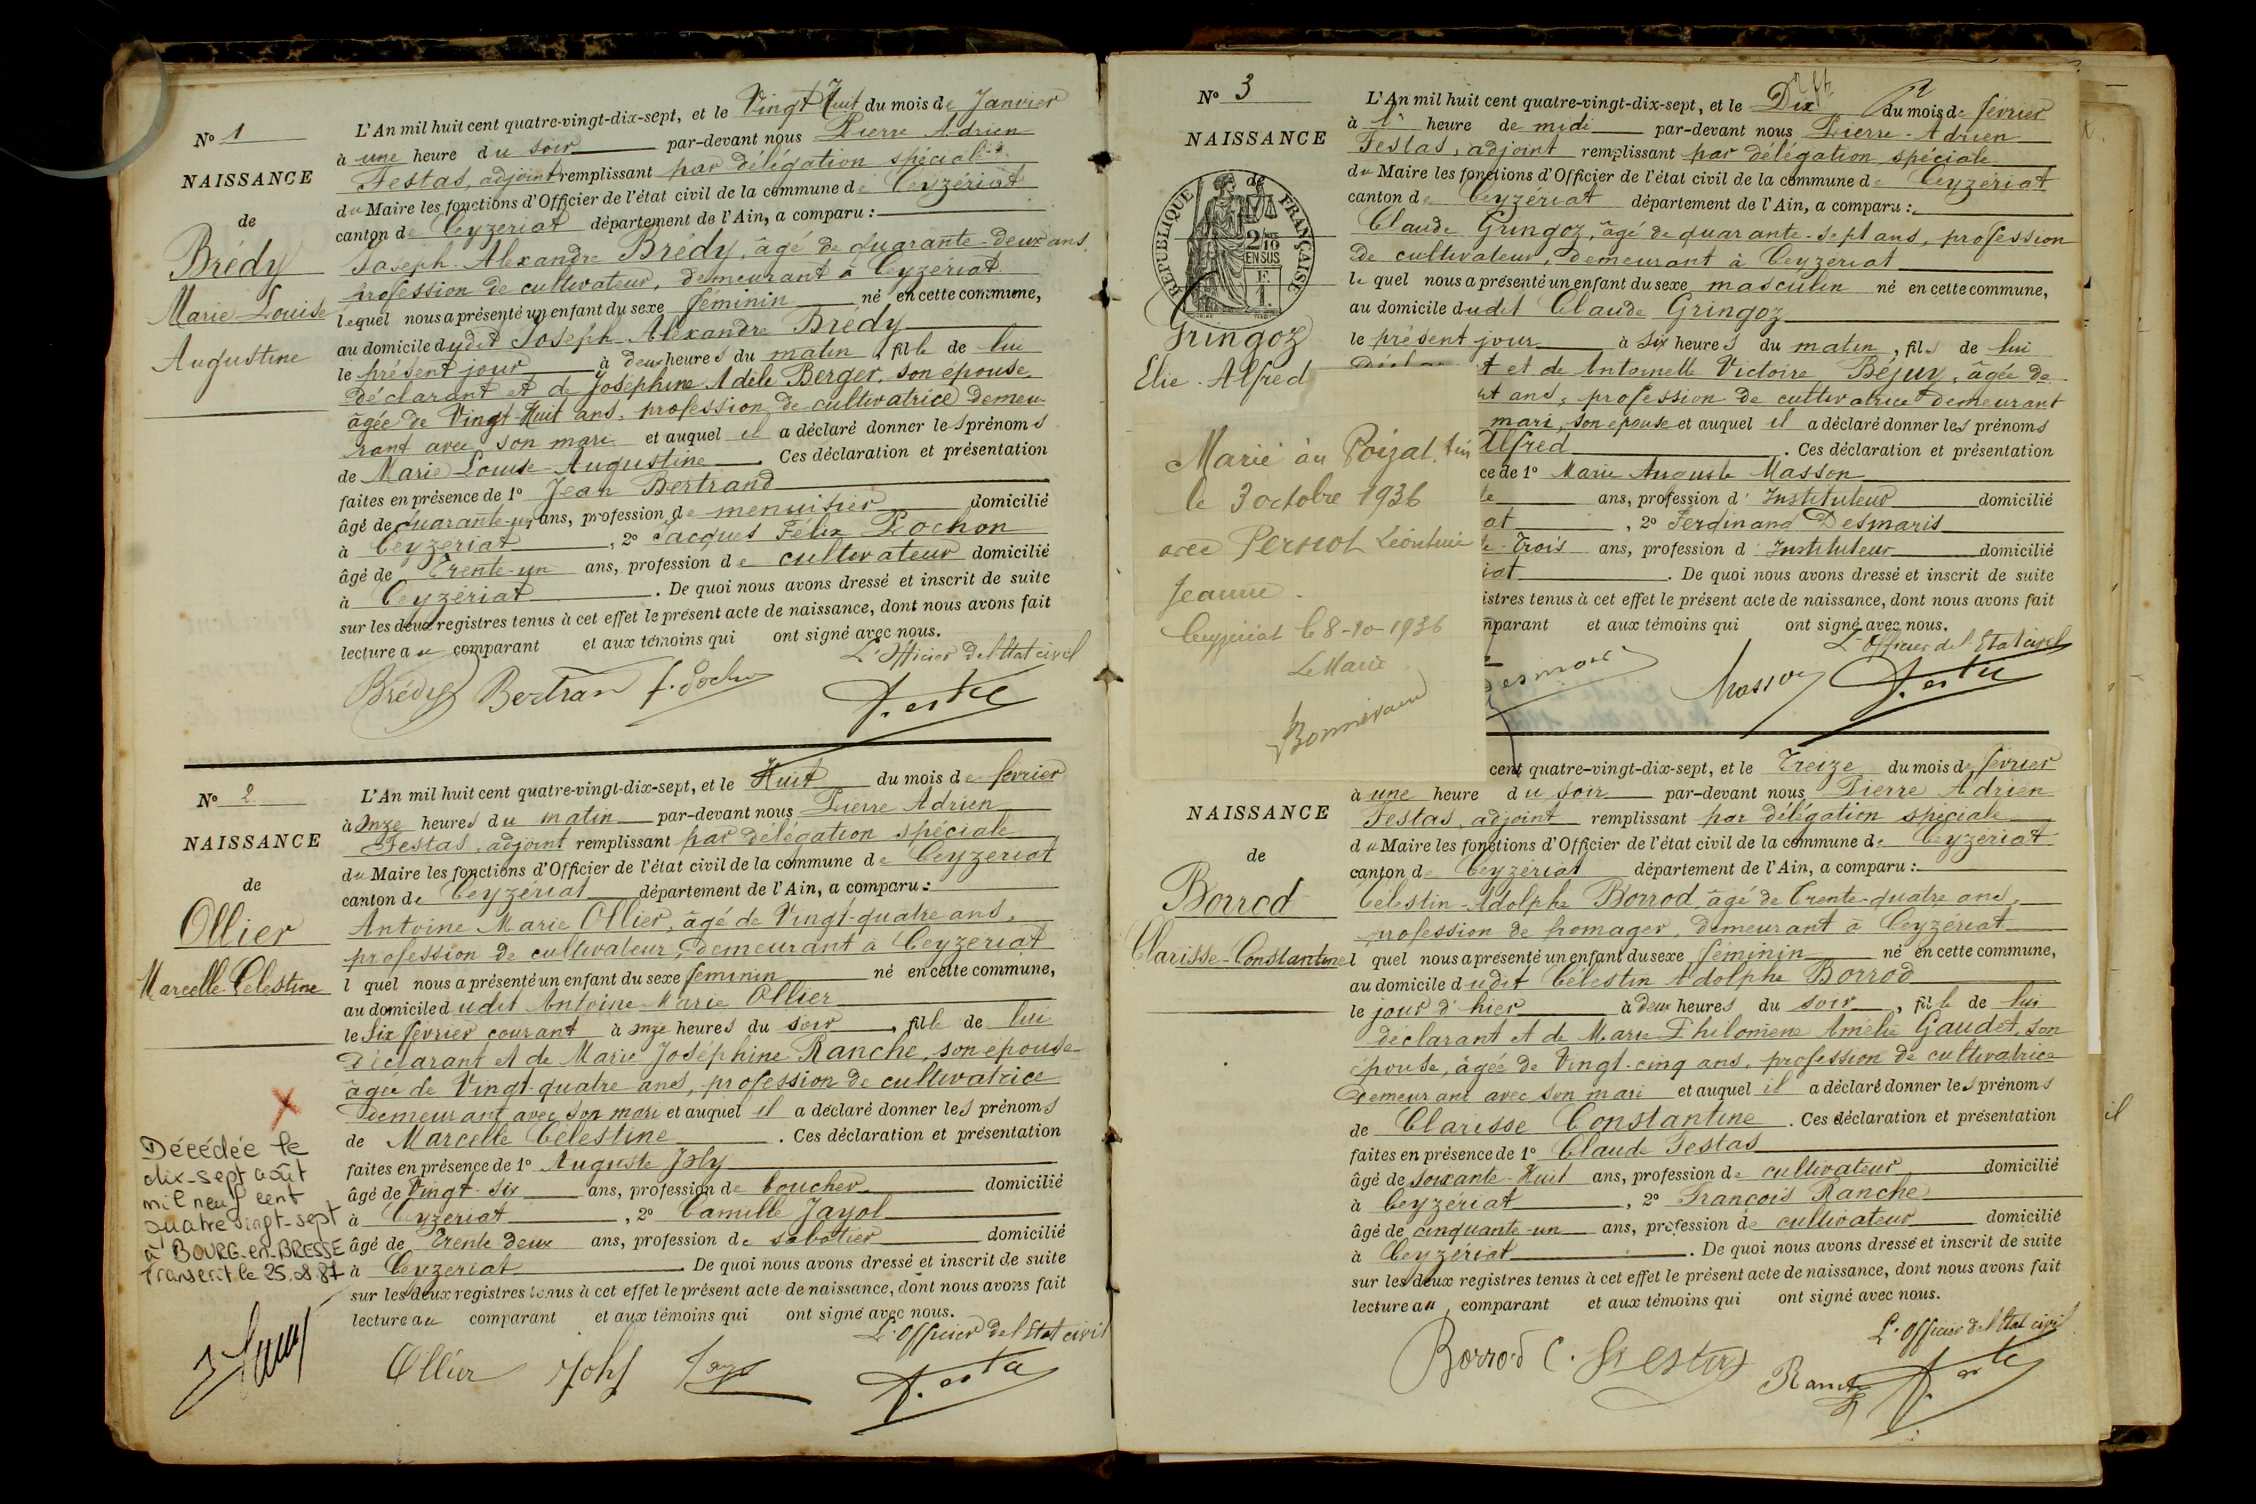 No 1
NAISSANCE
de
Brédy
Marie Louise
Augustine
L'An mil huit cent quatre-vingt-dix-sept, et le Vingt Huit du mois de Janvier
à une heure du soir par-devant nous Pierre Adrien
Festas, adjoint remplissant par délégation spéciale
du Maire les fonctions d'Officier de l'état civil de la commune de Ceyzériat
canton de Ceyzériat département de l'Ain, a comparu :
Joseph Alexandre Brédy, âgé de quarante-deux ans,
profession de cultivateur, demeurant à Ceyzériat
lequel nous a présenté un enfant du sexe féminin né en cette commune,
au domicile dudit Joseph Alexandre Brédy
le présent jour à deux heures du matin, fille de lui
déclarant et de Joséphine Adèle Berger, son épouse
âgée de Vingt-Huit ans, profession de cultivatrice demeu-
rant avec son mari et auquel il a déclaré donner les prénoms
de Marie Louise Augustine. Ces déclaration et présentation
faites en présence de 1° Jean Bertrand
âgé de quarante-un ans, profession de menuisier domicilié
à Ceyzériat, 2° Jacques Félix Pochon
âgé de Trente-un ans, profession de cultivateur domicilié
à Ceyzériat. De quoi nous avons dressé et inscrit de suite
sur les deux registres tenus à cet effet le présent acte de naissance, dont nous avons fait
lecture au comparant et aux témoins qui ont signé avec nous.
L'Officier de l'Etat civil
Brédy Bertran
No 2
NAISSANCE
de
Ollier
Marcelle-Célestine
Décédée le
dix-sept août
mil neuf cent
quatre vingt-sept
à BOURG-en-BRESSE
Transcrit le 25.08.87
L'An mil huit cent quatre-vingt-dix-sept, et le Huit du mois de février
à Onze heures du matin par-devant nous Pierre Adrien
Festas, adjoint remplissant par délégation spéciale
du Maire les fonctions d'Officier de l'état civil de la commune de Ceyzériat
canton de Ceyzériat département de l'Ain, a comparu :
Antoine Marie Ollier, âgé de Vingt-quatre ans,
profession de cultivateur, demeurant à Ceyzériat
l quel nous a présenté un enfant du sexe féminin né en cette commune,
au domicile dudit Antoine Marie Ollier
le Six février courant à onze heures du soir, fille de lui
Déclarant et de Marie Joséphine Ranche, son épouse
âgée de Vingt-quatre ans, profession de cultivatrice
demeurant avec son mari et auquel il a déclaré donner les prénoms
de Marcelle Célestine. Ces déclaration et présentation
faites en présence de 1° Auguste Joly
âgé de Vingt-six ans, profession de boucher domicilié
à Ceyzériat, 2° Camille Jayol
âgé de Trente deux ans, profession de sabotier domicilié
à Ceyzériat. De quoi nous avons dressé et inscrit de suite
sur les deux registres tenus à cet effet le présent acte de naissance, dont nous avons fait
lecture au comparant et aux témoins qui ont signé avec nous.
L'Officier de l'Etat civil
Ollier
No 3
NAISSANCE
de
RÉPUBLIQUE FRANÇAISE
2/10
EN SUS
F.
1.
Gringoz
Elie-Alfred
Marié au Poizat, Ain
le 3 octobre 1936
avec Pernot Léontine
Jeanne.
Ceyzériat le 8-10-1936
Le Maire
L'An mil huit cent quatre-vingt-dix-sept, et le Dix du mois de février
à 1 heure de midi par-devant nous Pierre-Adrien
Festas, adjoint remplissant par délégation spéciale
du Maire les fonctions d'Officier de l'état civil de la commune de Ceyzériat
canton de Ceyzériat département de l'Ain, a comparu :
Claude Gringoz, âgé de quarante-sept ans, profession
de cultivateur, demeurant à Ceyzériat
le quel nous a présenté un enfant du sexe masculin né en cette commune,
au domicile dudit Claude Gringoz
le présent jour à six heures du matin, fils de lui
t et de Antoinette Victoire Béjuy, âgée de
t ans, profession de cultivatrice demeurant
mari, son épouse et auquel il a déclaré donner les prénoms
Alfred. Ces déclaration et présentation
ce de 1° Marie Auguste Masson
te ans, profession d'Instituteur domicilié
at, 2° Ferdinand Desmaris
te-Trois ans, profession d'Instituteur domicilié
iat. De quoi nous avons dressé et inscrit de suite
istres tenus à cet effet le présent acte de naissance, dont nous avons fait
mparant et aux témoins qui ont signé avec nous.
L'Officier de l'Etat civil
Masson
NAISSANCE
de
Borrod
Clarisse-Constantine
cent quatre-vingt-dix-sept, et le Treize du mois de février
à une heure du soir par-devant nous Pierre Adrien
Festas, adjoint remplissant par délégation spéciale
du Maire les fonctions d'Officier de l'état civil de la commune de Ceyzériat
canton de Ceyzériat département de l'Ain, a comparu :
Célestin-Adolphe Borrod, âgé de Trente-quatre ans,
profession de fromager, demeurant à Ceyzériat
l quel nous a présenté un enfant du sexe féminin né en cette commune,
au domicile dudit Célestin Adolphe Borrod
le jour d'hier à deux heures du soir, fille de lui
déclarant et de Marie Philomène Amélie Gaudet, son
épouse, âgée de Vingt-cinq ans, profession de cultivatrice
Demeurant avec son mari et auquel il a déclaré donner les prénoms
de Clarisse Constantine. Ces déclaration et présentation
faites en présence de 1° Claude Festas
âgé de soixante-Huit ans, profession de cultivateur domicilié
à Ceyzériat, 2° François Ranche
âgé de cinquante-un ans, profession de cultivateur domicilié
à Ceyzériat. De quoi nous avons dressé et inscrit de suite
sur les deux registres tenus à cet effet le présent acte de naissance, dont nous avons fait
lecture au comparant et aux témoins qui ont signé avec nous.
L'Officier de l'Etat civil
Borrod C.
il